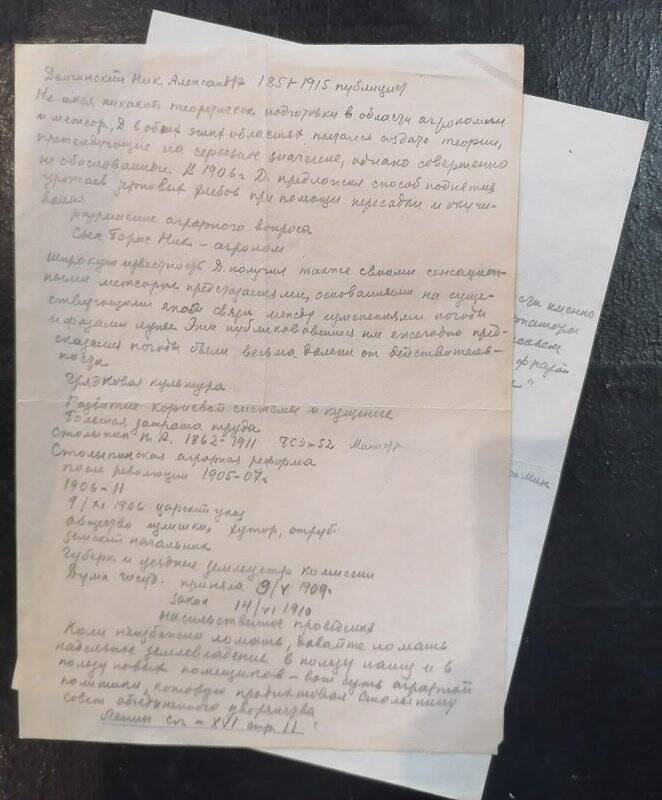 Демчинский Ник. Александр 1851-1915 публицист
Не имея никакой теоретическ подготовки в области агрономии
и метеор, Д в обеих этих областях пытался создать теории,
претендующие на серьезное значение, однако совершенно
не обоснованные. В 1906 г Д. предложил способ поднятия
урожаев зерновых хлебов при помощи пересадки и окучи-
вания
разрешение аграрного вопроса
Сын Борис Ник. - агроном
Широкую известность Д. получил также своими сенсацион-
ными метеорол предсказаниями, основанными на суще-
ствующей якобы связи между изменениями погоды
и фазами луны Эти публиковавшиеся им ежегодно пред-
сказания погоды были весьма далеки от действитель-
ности
Грядковая культура
Развитие корневой системы и кущение
Большая затрата труда
Столыпин П. А. 1862-1911 БСЭ т 52 Министр
Столыпинская аграрная реформа
после революции 1905-07 г
1906-11
9/XI 1906 царский указ
общество хутор, отруб
земский начальник
Губерн и уездные землеустр комиссии
Дума госуд. приняла 9/V 1909г
закон 14/VI 1910
насильственное проведения
Коли неизбежно ломать, давайте ломать
надельное землевладение в пользу и в
пользу новых помещиков - вот суть аграрной
политики, которую продиктовал Столыпину
совет объединенного дворянства
Ленин соч т XVI стр 11
именно